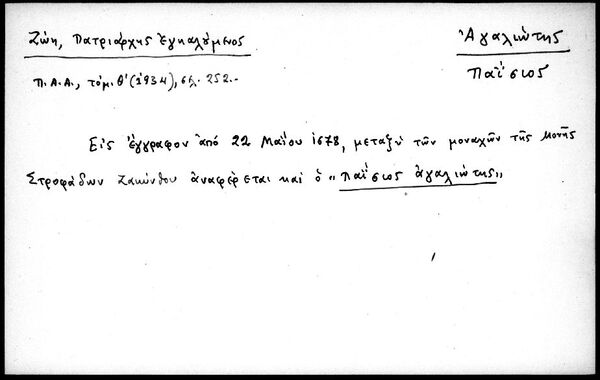 Ζώη, Πατριάρχης Ἐγκαλούμενος
Ἀγαλιώτης
Παΐσιος
Π.Α.Α., τόμ. Θ' (1934), σελ. 252.-
Εἰς ἔγγραφον ἀπό 22 Μαΐου 1678, μεταξύ τῶν μοναχῶν τῆς Μονῆς
Στροφάδων Ζακύνθου ἀναφέρεται καί ὁ «Παΐσιος ἀγαλιώτης»